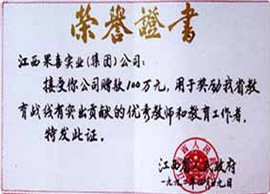 榮譽證書
江西果喜实业(集团)公司:
接受你公司赠款100万元,用于奖励我省教
育战线有突出贡献的优秀教师和教育工作者。
特发此证。
江西省人民政府